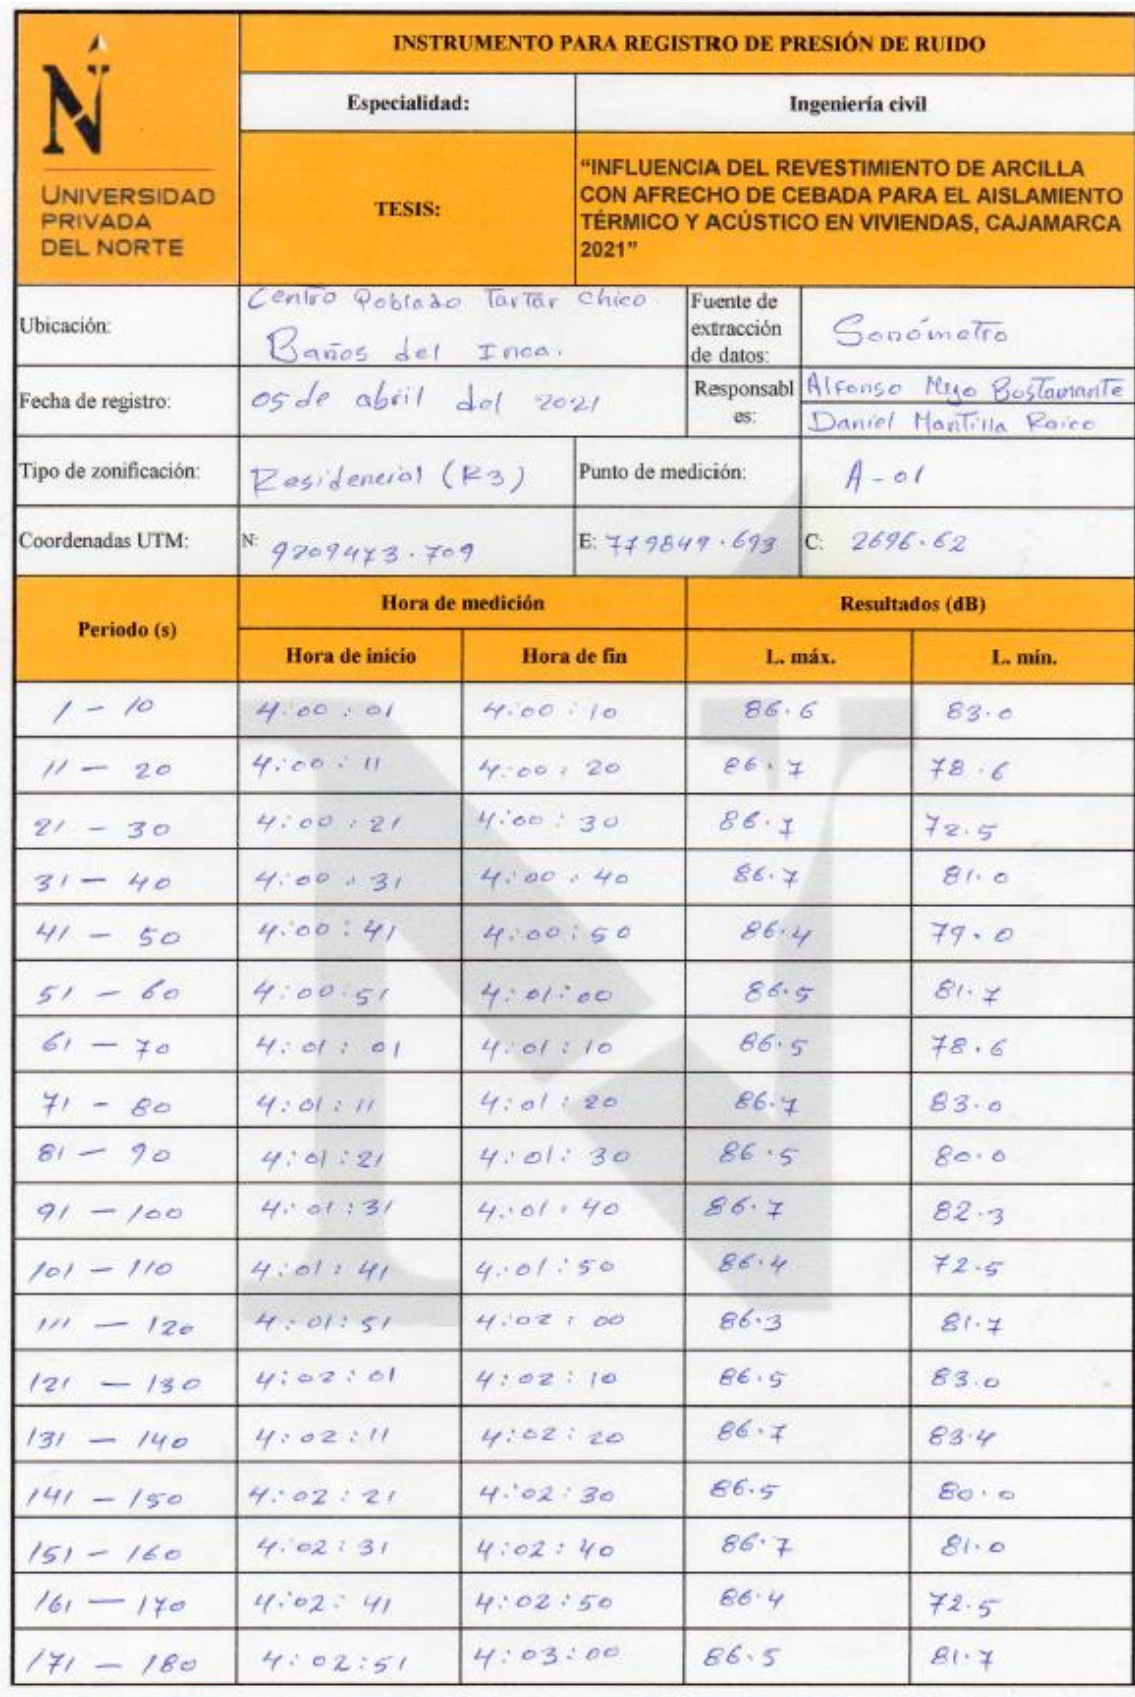 N
UNIVERSIDAD
PRIVADA
DEL NORTE
INSTRUMENTO PARA REGISTRO DE PRESIÓN DE RUIDO
Especialidad: Ingeniería civil
TESIS:
“INFLUENCIA DEL REVESTIMIENTO DE ARCILLA
CON AFRECHO DE CEBADA PARA EL AISLAMIENTO
TÉRMICO Y ACÚSTICO EN VIVIENDAS, CAJAMARCA
2021”
Ubicación:
Centro Poblado Tartar Chico
Baños del Inca.
Fuente de
extracción
de datos:
Sonómetro
Fecha de registro: 05 de abril del 2021
Responsabl
es:
Alfonso Bustamante
Daniel Mantilla
Tipo de zonificación: Residencial (R3) Punto de medición: A-01
Coordenadas UTM: N: 9209473.709 E: 779849.693 C: 2696.62
Periodo (s) Hora de medición Resultados (dB)
Hora de inicio Hora de fin L. máx. L. mín.
1 - 10 4:00:01 4:00:10 86.6 83.0
11 - 20 4:00:11 4:00:20 86.7 78.6
21 - 30 4:00:21 4:00:30 86.7 72.5
31 - 40 4:00:31 4:00:40 86.7 81.0
41 - 50 4:00:41 4:00:50 86.4 79.0
51 - 60 4:00:51 4:01:00 86.5 81.7
61 - 70 4:01:01 4:01:10 86.5 78.6
71 - 80 4:01:11 4:01:20 86.7 83.0
81 - 90 4:01:21 4:01:30 86.5 80.0
91 - 100 4:01:31 4:01:40 86.7 82.3
101 - 110 4:01:41 4:01:50 86.4 72.5
111 - 120 4:01:51 4:02:00 86.3 81.7
121 - 130 4:02:01 4:02:10 86.5 83.0
131 - 140 4:02:11 4:02:20 86.7 83.4
141 - 150 4:02:21 4:02:30 86.5 80.0
151 - 160 4:02:31 4:02:40 86.7 81.0
161 - 170 4:02:41 4:02:50 86.4 72.5
171 - 180 4:02:51 4:03:00 86.5 81.7